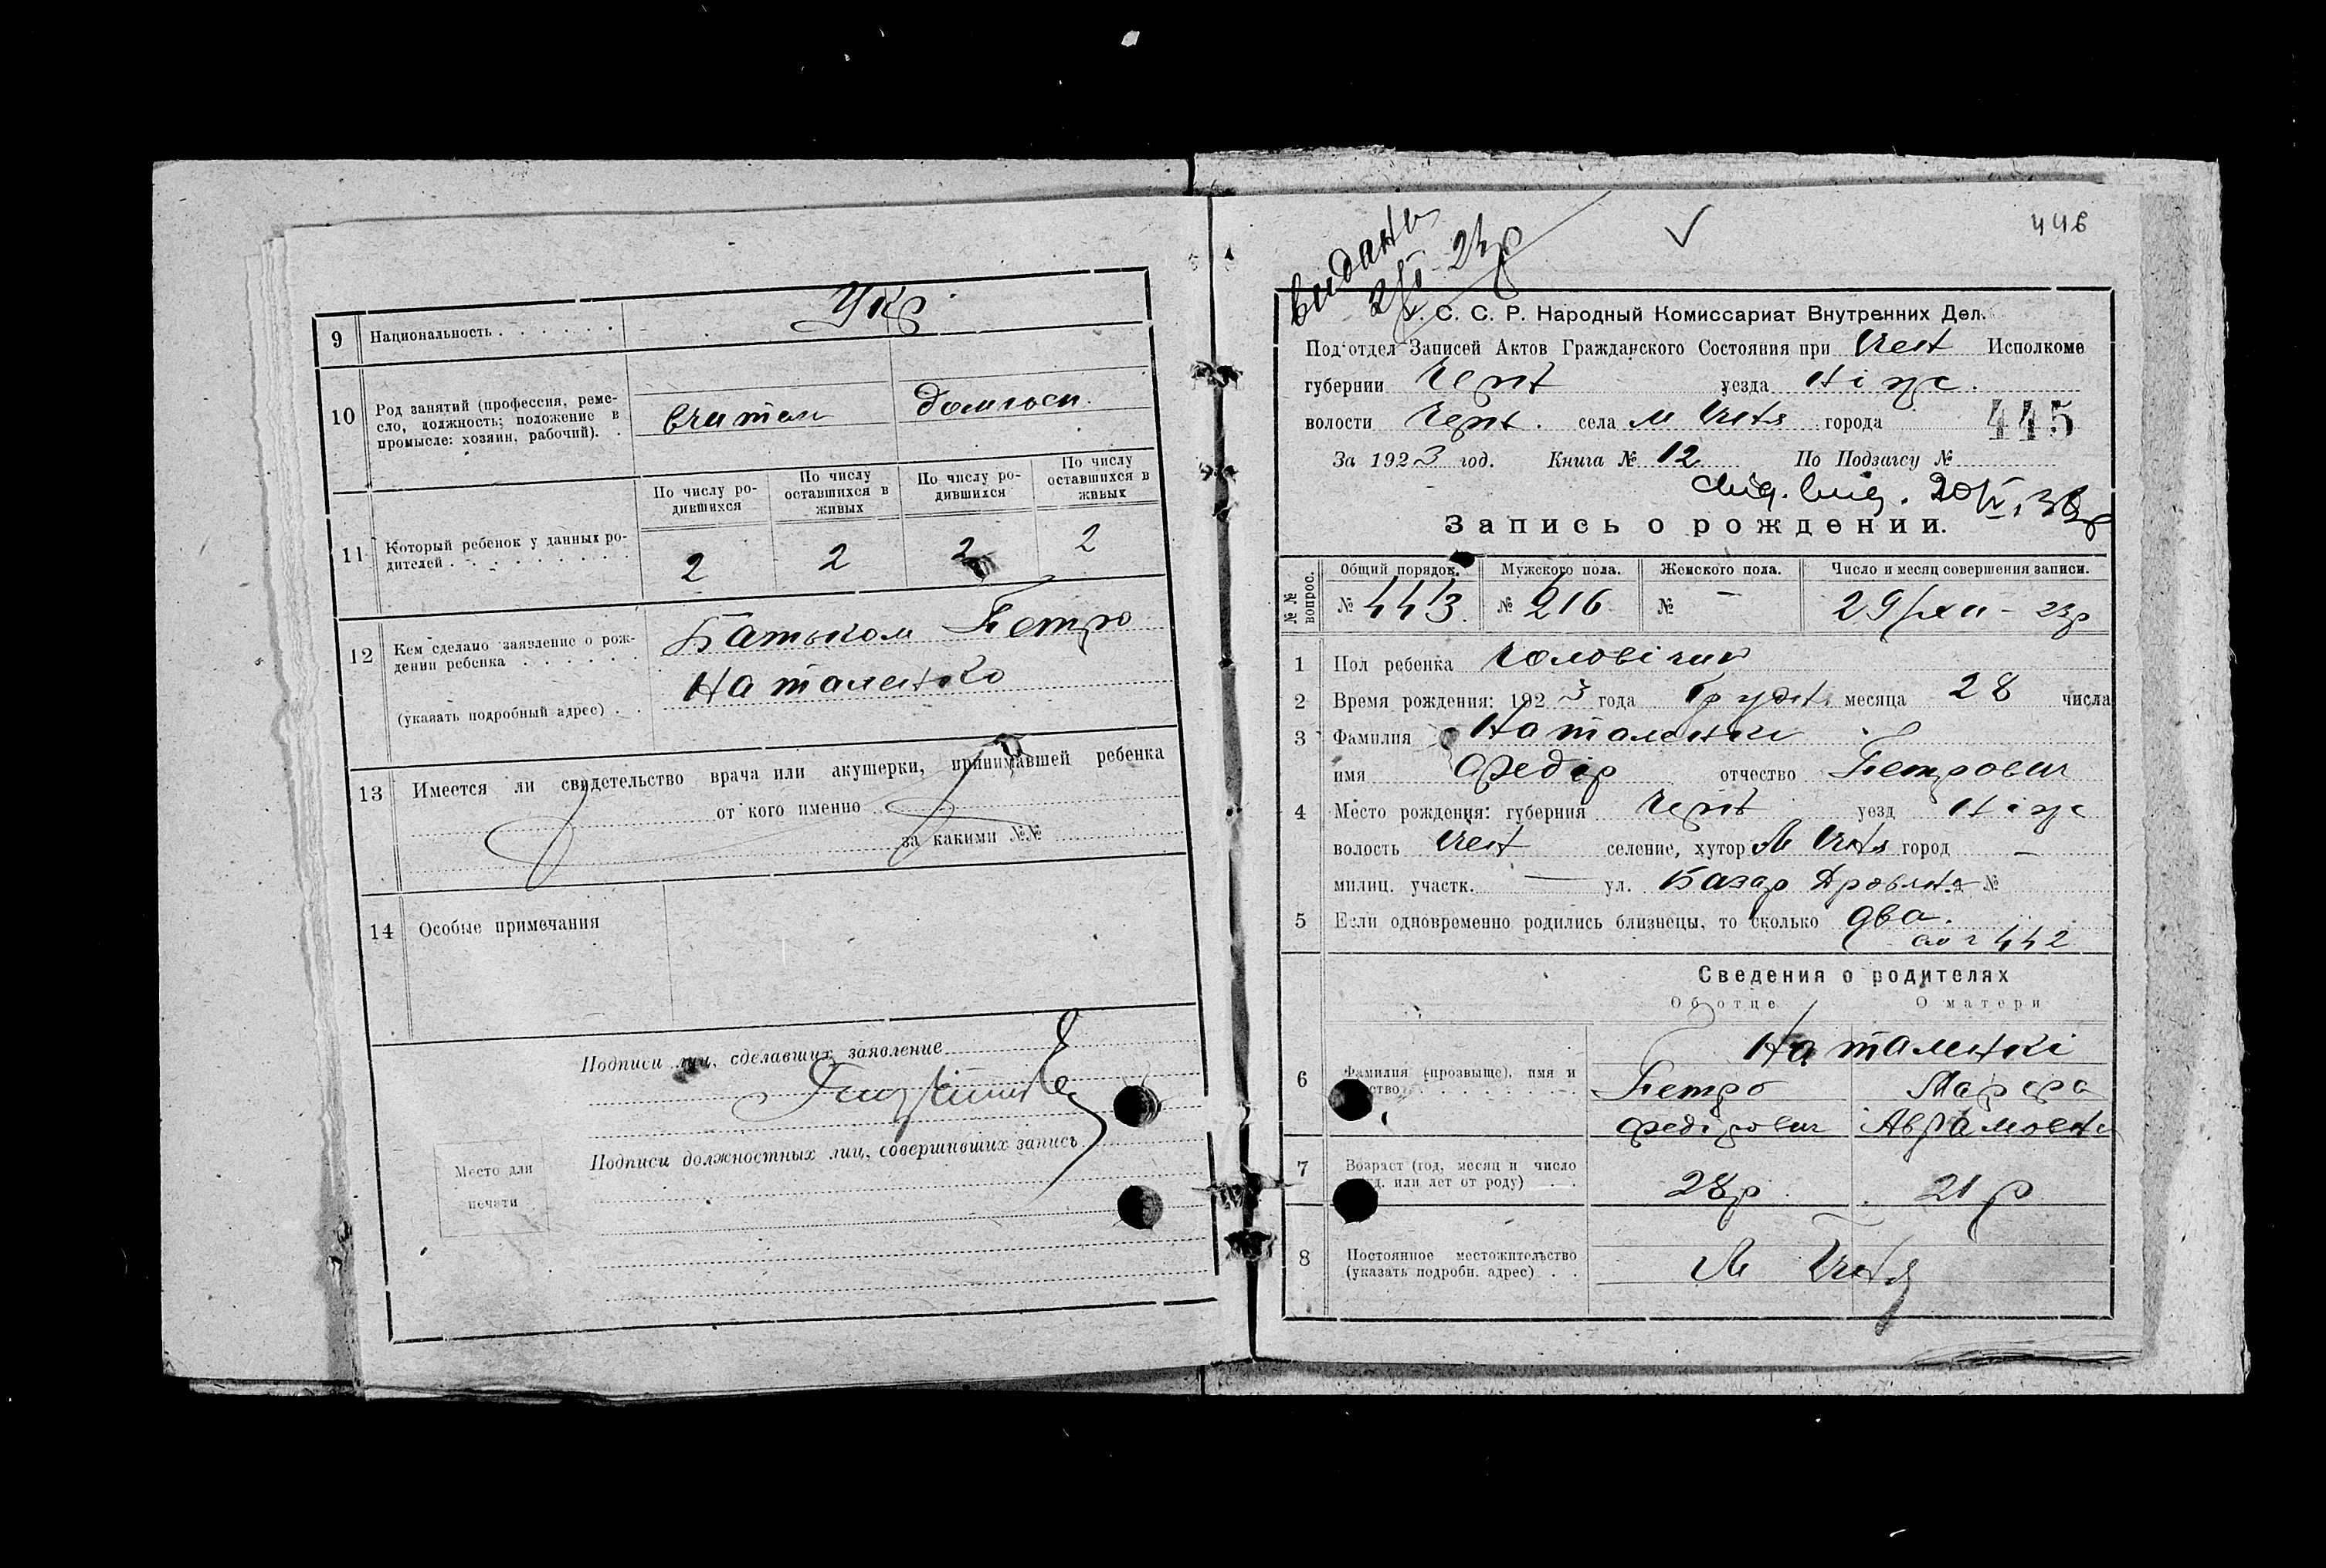 9 Национальность . . . . . . Укр
10 Род занятий (профессия, реме-
сло, должность; положение в
промысле: хозяин, рабочий). .
домгосп.
По числу ро-
дившихся
По числу
оставшихся в
живых
По числу ро-
дившихся
По числу
оставшихся в
живых
11 Который ребенок у данных ро-
дителей . . . . . . . .
2 2 2 2
12 Кем сделано заявление о рож-
дении ребенка . . . . . .
Батьком Петро
Наталенко
(указать подробный адрес) . .
13 Имеется ли свидетельство врача или акушерки, принимавшей ребенка
от кого именно
за какими №№
14 Особые примечания
Подписи лиц, сделавших заявление
Подписи должностных лиц, совершивших запись
Место для
печати
446
видано
С. С. Р. Народный Комиссариат Внутренних Дел.
Под'отдел Записей Актов Гражданского Состояния при Исполкоме
губернии Черн уезда Ніж.
волости села м города 445
За 1923 год. Книга № 12 По Подзагсу №
Запись о рождении.
№№ вопрос.
Общий порядок. Мужского пола. Женского пола. Число и месяц совершения записи.
№ 443. № 216 № — 29/XII - 23р
1 Пол ребенка Чоловічий
2 Время рождения: 1923 года Грудн. месяца 28 числа
3 Фамилия Наталенкі
имя Федір отчество Петрович
4 Место рождения: губерния Черн уезд Ніж
волость селение, хутор М город —
милиц. участк. — ул. Базар №
5 Если одновременно родились близнецы, то сколько два.
442
Сведения о родителях
Об отце О матери
6 Фамилия (прозвище), имя и
ство
Наталенкі
Петро Марфа
Федорович Аврамовна
7 Возраст (год, месяц и число
д. или лет от роду) . .
28р. 21р
8 Постоянное местожительство
(указать подробн. адрес) . .
М